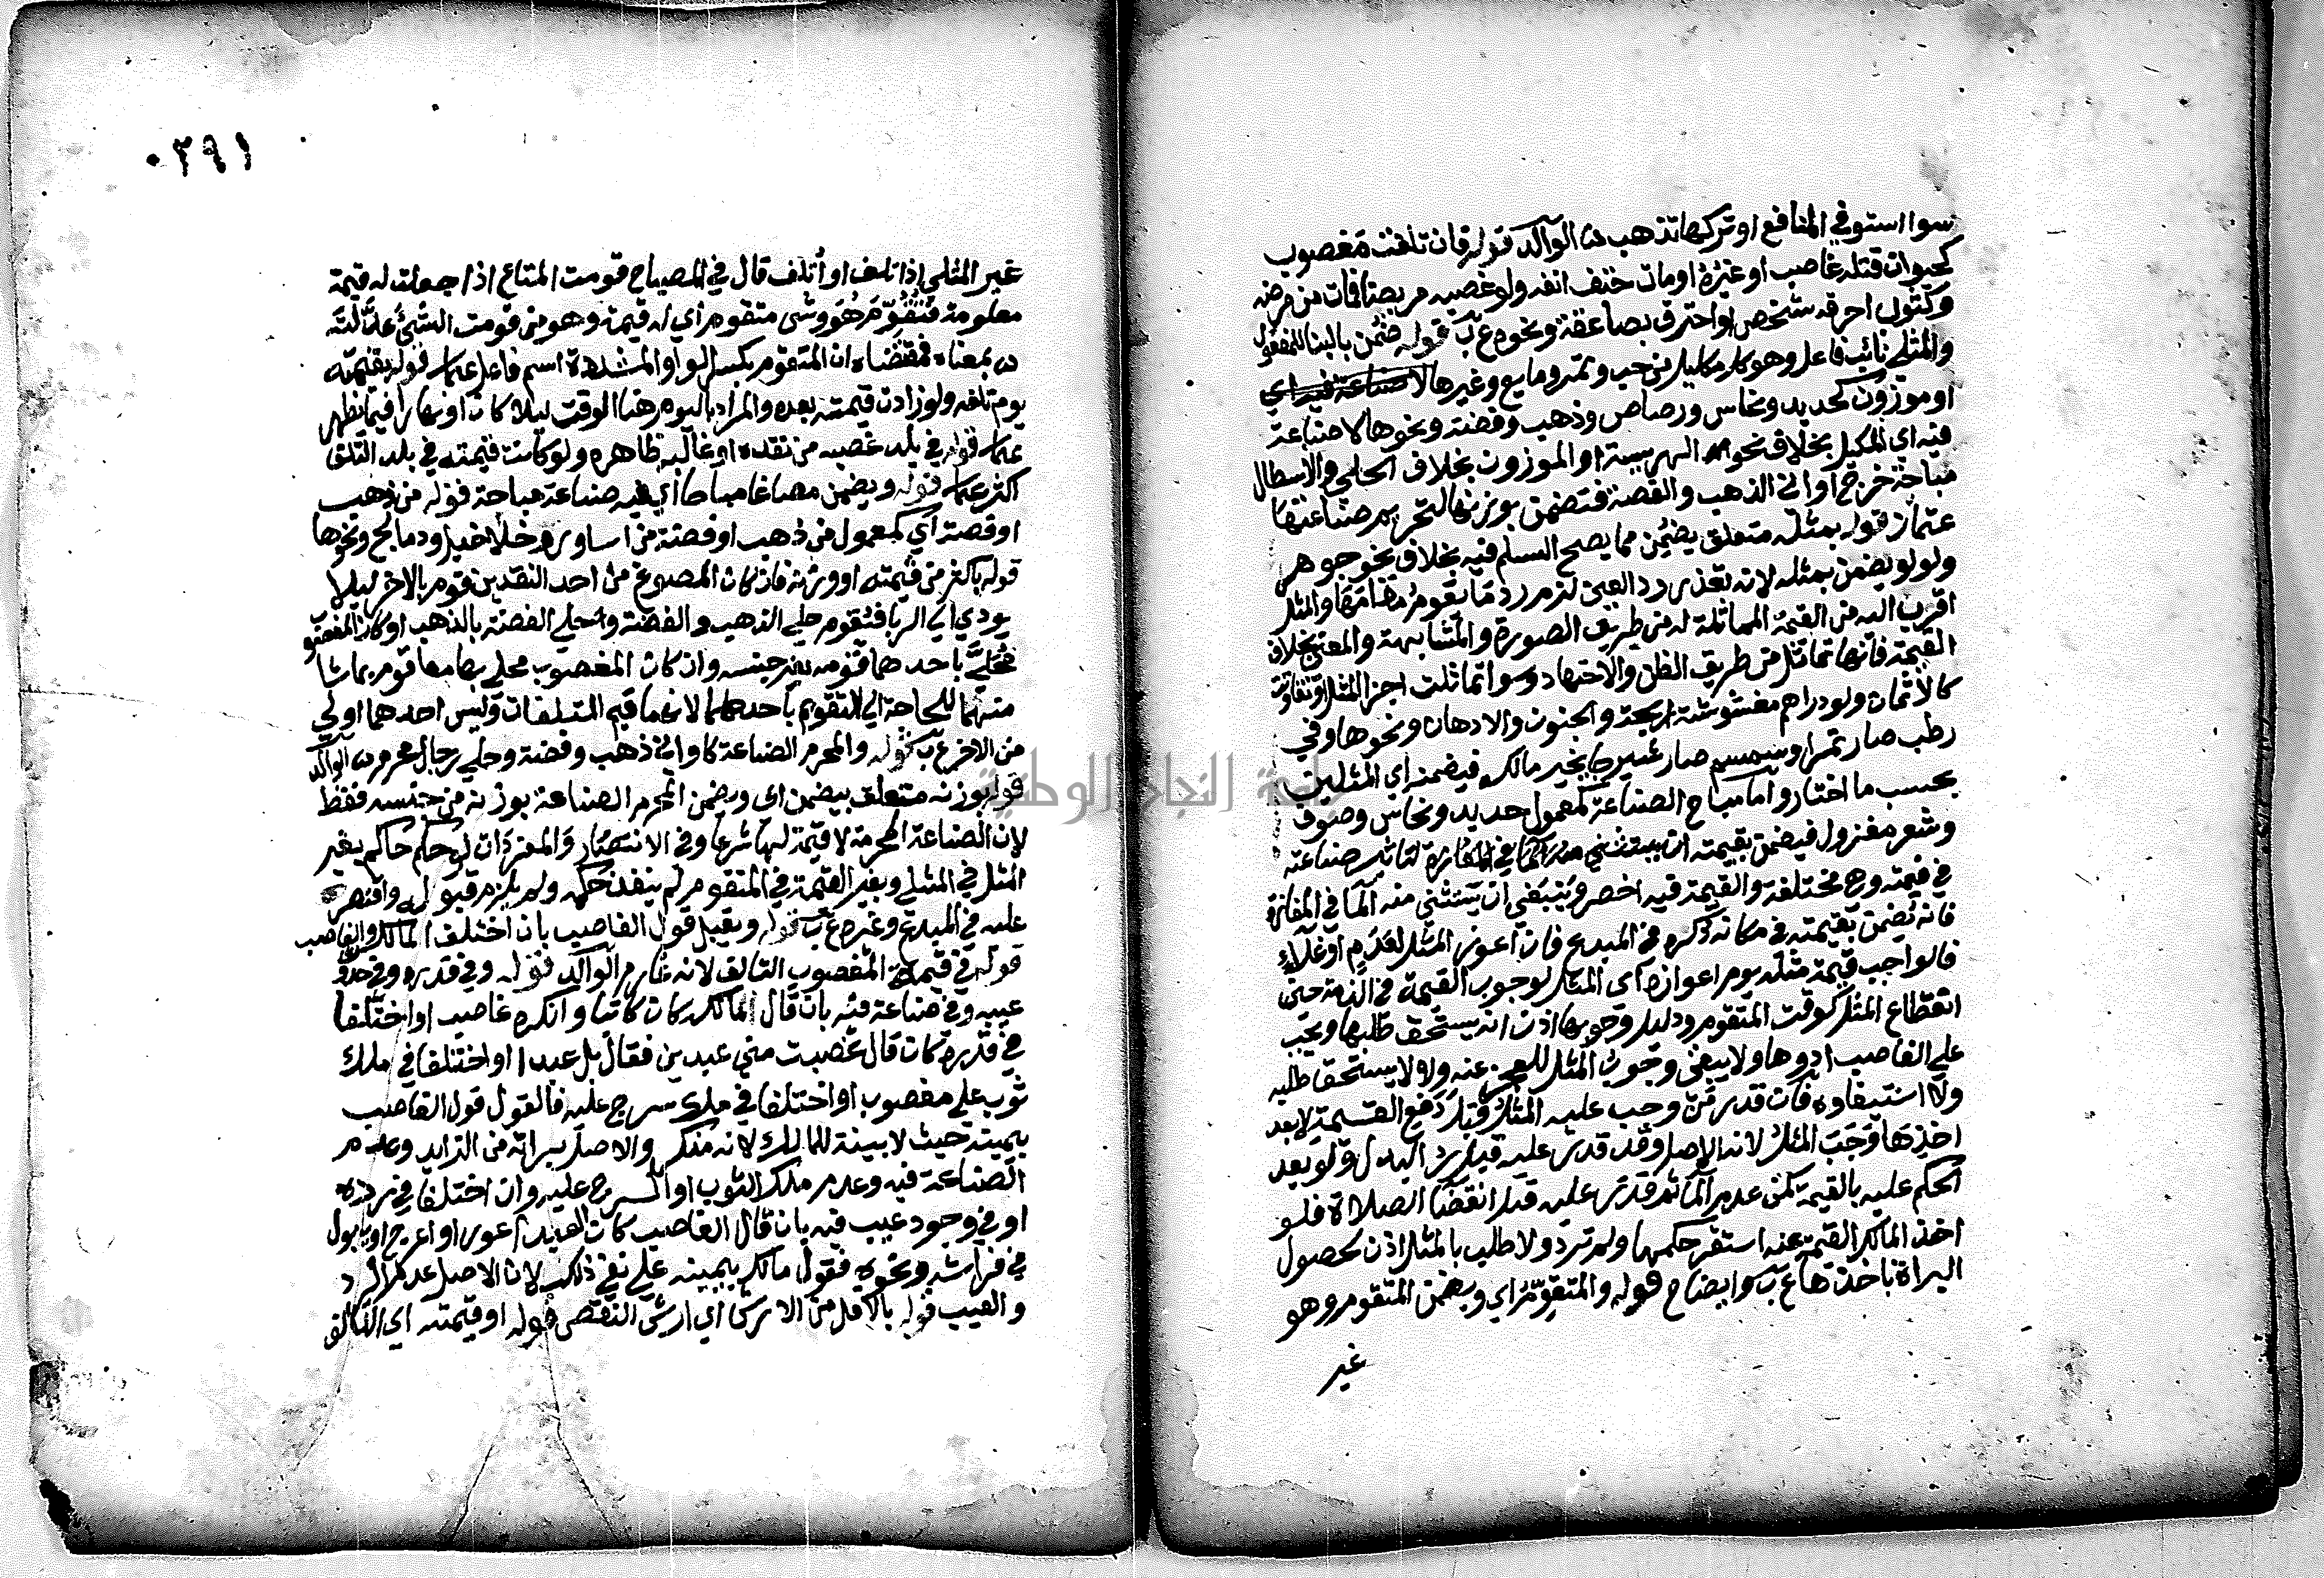 سوا استوفي المنافع او تركها تذهب ش الوالد قوله فان تلفت مغصوب
كحيوان قتله غاصب او غيره او مات حتف انفه ولو غصبه مريضا فمات من مرضه
وكثوب احرقه شخص او احترق بصاعقة ونحوه ع ب قوله ضمن بالبنا للمفعول
والمثلي نائب فاعل وهو كل مكيل من حب وتمر ومايع وغيرها لا صناعة فيه اي
او موزون كحديد ونحاس ورصاص وذهب وفضة ونحوها لا صناعة
فيه اي المكيل بخلاف نحو الهريسة او الموزون بخلاف الحلي والاسطال
مباحة خرج اواني الذهب والفضة فتضمن بوزنها لتحريم صناعتها
عثمان قوله بمثله متعلق بضمن مما يصح السلم فيه بخلاف نحو جوهر
ولولو يضمن بمثله لانه تعذر رد العين لزم رد ما يقوم مقامها والمثل
اقرب اليه من القيمة المماثلة له من طريق الصورة والمشابهة والمعنى بخلاف
القيمة فانها تماثل من طريق الظن والاجتهاد وسوا تماثلت اجزا المثل او تفاوتت
كالاثمان ولو دراهم مغشوشة رايجة والحبوب والادهان ونحوها وفي
رطب صار تمرا وسمسم صار شيرجا يخير مالكه فيضمنه اي المثلين
بحسب ما اختار واما مباح الصناعة كمعمول حديد ونحاس وصوف
وشعر مغزول فيضمن بقيمته ان يستثنى منه الما في المفازة لتاثير صناعته
في قيمته وهي مختلفة والقيمة فيه اخصر وينبغي ان يستثنى منه الما في المفازة
فانه يضمن بقيمته في مكانه ذكره في المبدع فان اعوز المثل لعدم او غلاء
فالواجب قيمة مثله يوم اعوازه اي المثل لوجوب القيمة في الذمة حين
انقطاع المثل كوقت المتقوم ودليل وجوبها اذن انه يستحق طلبها ويجب
على الغاصب ادوها ولا يبقى وجوب المثل للعجز عنه ولا يستحق طلبه
ولا استيفاوه فان قدر من وجب عليه المثل قبل دفع القيمة لا بعد
اخذها وجب المثل لانه الاصل وقد قدر عليه قبل رد البدل ولو بعد
الحكم عليه بالقيمة كمن عدم الما ثم قدر عليه قبل انقضا الصلاة فلو
اخذ المالك القيمة عنه استقر حكمها ولم ترد ولا طلب بالمثل اذن لحصول
البراة باخذها ع ب وايضاح قوله والمتقوم اي ويضمن المتقوم وهو
غير
٠٢٩١
غير المثلي اذا تلف او اتلف قال في المصباح قومت المتاع اذا جعلت له قيمة
معلومة فتقوم هو وشي متقوم اي له قيمة وهو من قومت الشئ عدلته
بمعناه فمقتضاه ان المتقوم بكسر الواو المشددة اسم فاعل عثمان قوله بقيمته
يوم تلفه ولو زادت قيمته بعده والمراد باليوم هنا الوقت ليلا كان او نهارا فيما يظهر
عثمان قوله في بلد غصبه من نقده او غالبه ظاهره ولو كانت قيمته في بلد التلف
اكثر عثمان قوله ويضمن مصاغا مباحا اي فيه صناعة مباحة قوله من ذهب
او فضة اي كمعمول من ذهب او فضة من اساوره وخلاخيل ودمالج ونحوها
قوله باكثر من قيمته او وزنه فان كان المصوغ من احد النقدين قوم بالاخر ليلا
يودي الى الربا فيقوم حلي الذهب والفضة وحلي الفضة بالذهب او كان المغصوب
محلى باحدهما قومه بغير جنسه وان كان المغصوب محلى بهما معا قوم بما شا
منهما للحاجة الى التقويم باحدهما لانهما قيم المتلفات وليس احدهما اولى
من الاخر ع ب قوله والمحرم الصناعة كاواني ذهب وفضة وحلي رجال محرم ش الوالد
قوله بوزنه متعلق بيضمن اي ويضمن المحرم الصناعة بوزنه من جنسه فقط
لان الصناعة المحرمة لا قيمة لها شرعا وفي الانتصار والمفردات لو حكم حاكم بغير
المثل في المثلي وبغير القيمة في المتقوم لم ينفذ حكمه ولم يلزم قبوله واقتصر
عليه في المبدع وغيره ع ب قوله ويقبل قول الغاصب بان اختلف المالك والغاصب
قوله في قيمة المغصوب التالف لانه غارم الوالد قوله وفي قدره وفي حدوث
عيبه وفي صناعة فيه بان قال المالك كان كاتبا وانكره غاصب او اختلفا
في قدره كان قال غصبت مني عبدين فقال بل عبدا او اختلفا في ملك
ثوب على مغصوب او اختلفا في ملك سرج عليه فالقول قول الغاصب
بيمينه حيث لا بينة للمالك لانه منكر والاصل براته من الزايد وعدم
الصناعة فيه وعدم ملك الثوب او السرج عليه وان اختلفا في رده
او في وجود عيب فيه بان قال الغاصب كان العبد اعور او اعرج او يبول
في فراشه ونحوه فقول مالك بيمينه على نفي ذلك لان الاصل عدم الرد
والعيب قوله بالاقل من الارش اي ارش النقص قوله او قيمته اي التالف